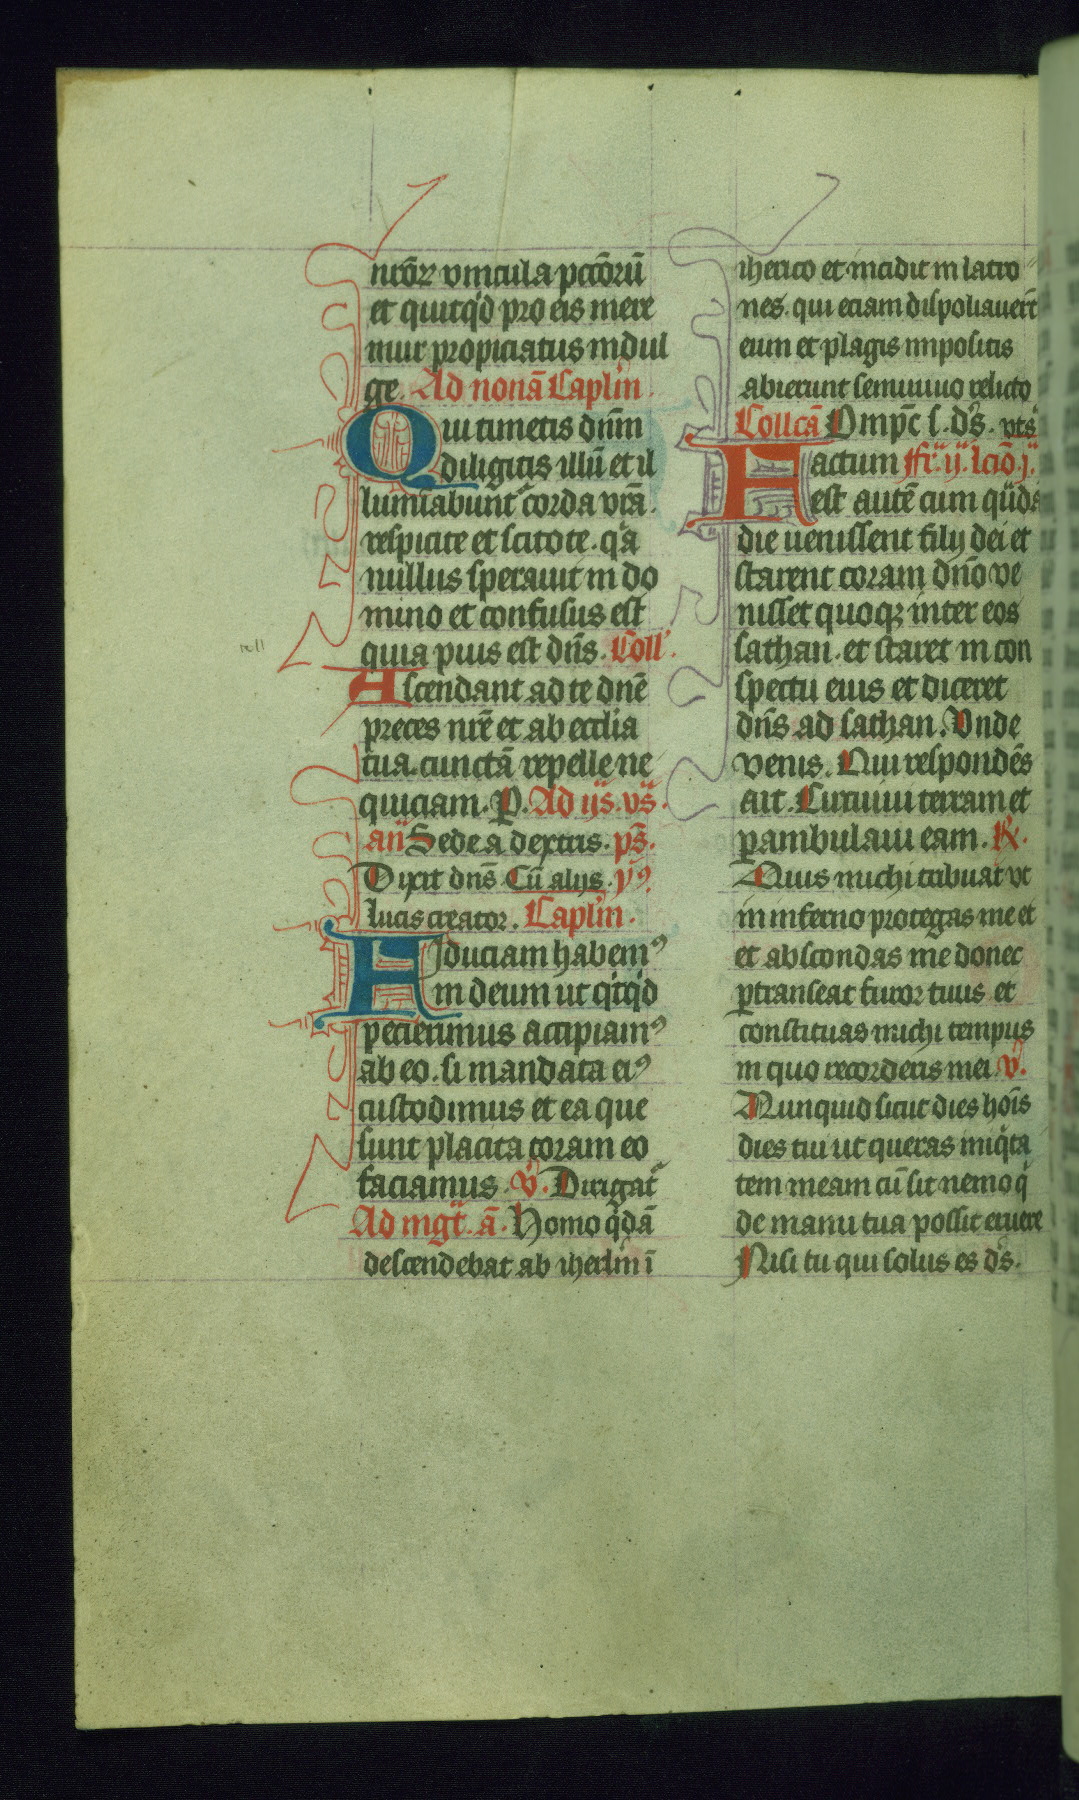 nrōrꝝ vincula pctōrū
et quitq'd pro eis mere
mur propiciatus indul
ge. Ad nonā Caplm̄.
Qui timetis dnm̄
diligitis illū et il
lumīabunt corda vrā.
respicite et scitote. q'a
nullus sperauit in do
mino et confusus est
quia pius est dn̄s. Coll'.
Ascendant ad te dnē
preces nrē et ab ecclia
tua. cunctā repelle ne
quiciam. P. Ad ijs. vs̄.
an̄ Sede a dextris. ps̄.
Dixit dn̄s Cū alijs. yꝰ.
lucis creator. Caplm̄.
Fiduciam habemꝰ
in deum ut q'tq'd
pecierimus accipiamꝰ
ab eo. si mandata eiꝰ
custodimus et ea que
sunt placita coram eo
faciamus. v̄. Dirigat'
Ad mgt̄. ā. Homo q'dā
descendebat ab iherlm̄ ī
iherico et incidit in latro
nes. qui eciam dispoliauer̄t
eum et plagis impositis
abierunt semiuiuo relicto
Collcā Ompc̄ s. ds̄. vts̄
Factum fr̄. ij. lcīo. j.
est autē cum quadā
die uenissent filij dei et
starent coram dn̄o ve
nisset quoqꝫ inter eos
sathan. et staret in con
spectu eius et diceret
dn̄s ad sathan. Vnde
venis. Qui respondēs
ait. Circuiui terram et
ꝑambulaui eam. R.
Quis michi tribuat vt
in inferno protegas me et
et abscondas me donec
ꝑtranseat furor tuus et
constituas michi tempus
in quo recorderis mei. v̄.
Nunquid sicut dies hoīs
dies tui ut queras iniq'ta
tem meam cū sit nemo q'
de manu tua possit eruere
Nisi tu qui solus es ds̄.